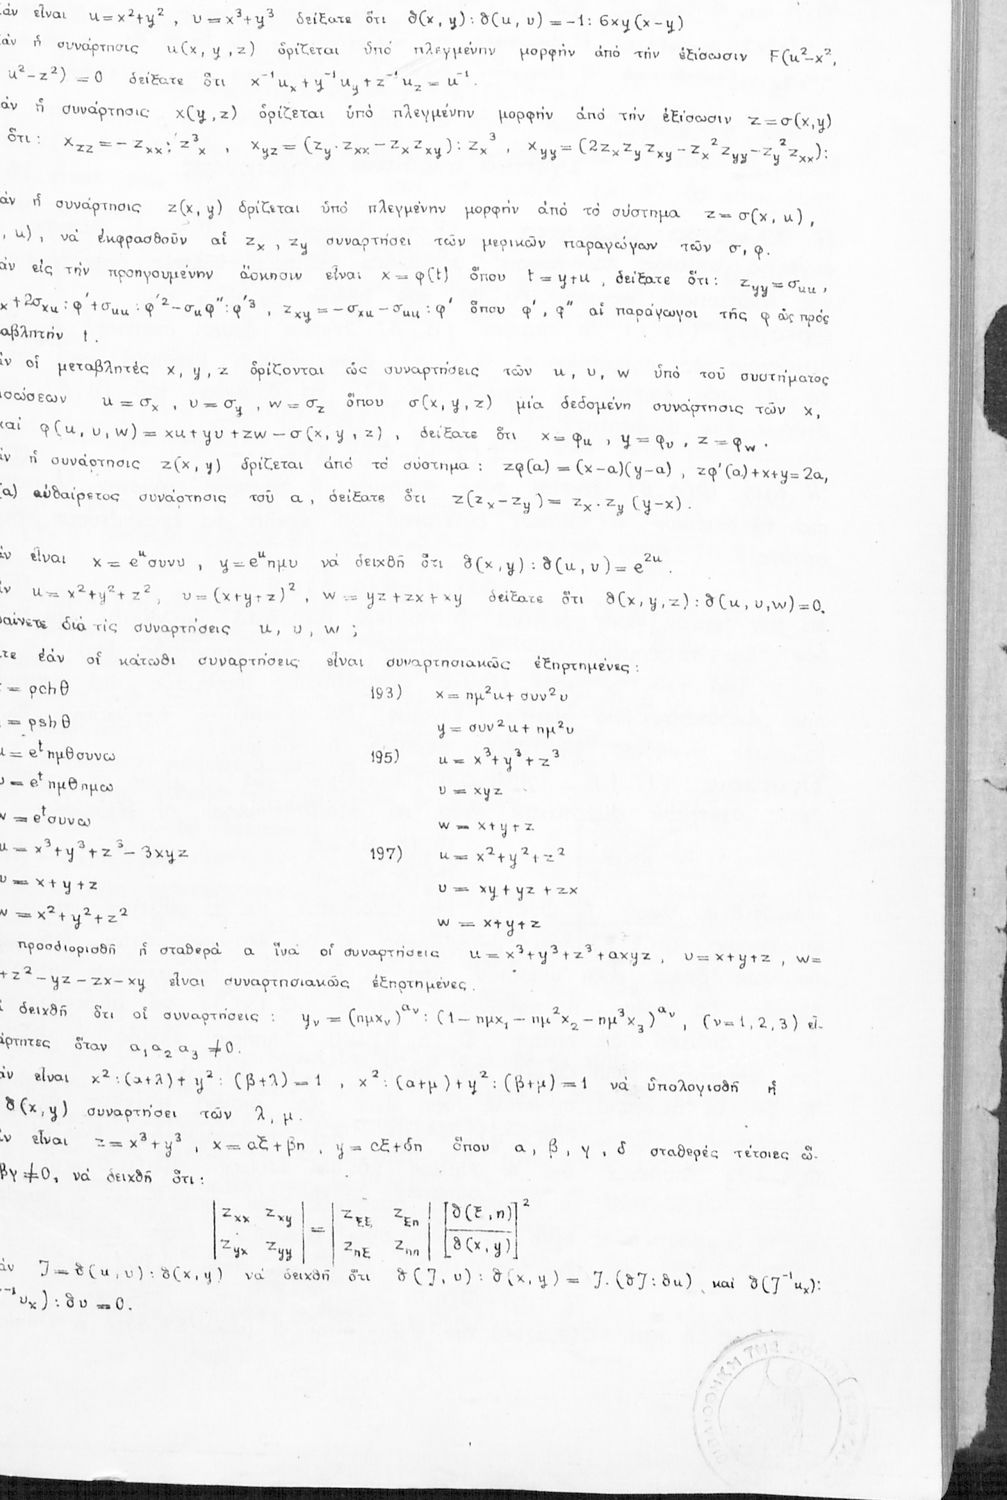 άν εἶναι u=x²+y² , υ=x³+y³ δείξατε ὅτι ∂(x,y):∂(u,υ)=-1:6xy(x-y)
άν ἡ συνάρτησις u(x,y,z) ὁρίζεται ὑπό πλεγμένην μορφήν ἀπό τήν ἐξίσωσιν F(u²-x²,
u²-z²)=0 δείξατε ὅτι x⁻¹uₓ+y⁻¹u_y+z⁻¹u_z=u⁻¹.
άν ἡ συνάρτησις x(y,z) ὁρίζεται ὑπό πλεγμένην μορφήν ἀπό τήν ἐξίσωσιν z=σ(x,y)
ὅτι: x_zz=-z_xx:z³_x , x_yz=(z_y.z_xx-z_x z_xy):z_x³ , x_yy=(2z_x z_y z_xy-z_x²z_yy-z_y²z_xx):
άν ἡ συνάρτησις z(x,y) ὁρίζεται ὑπό πλεγμένην μορφήν ἀπό τό σύστημα z=σ(x,u),
,u), νά ἐκφρασθοῦν αἱ z_x , z_y συναρτήσει τῶν μερικῶν παραγώγων τῶν σ,φ.
άν εἰς τήν προηγουμένην ἄσκησιν εἶναι x=φ(t) ὅπου t=y+u , δείξατε ὅτι: z_yy=σ_uu ,
x+2σ_xu:φ'+σ_uu:φ'²-σ_uφ'':φ'³ , z_xy=-σ_xu-σ_uu:φ' ὅπου φ', φ'' αἱ παράγωγοι τῆς φ ὡς πρός
αβλητήν t.
άν οἱ μεταβλητές x,y,z ὁρίζονται ὡς συναρτήσεις τῶν u,υ,w ὑπό τοῦ συστήματος
ισώσεων u=σ_x , υ=σ_y , w=σ_z ὅπου σ(x,y,z) μία δεδομένη συνάρτησις τῶν x,
καί φ(u,υ,w)=xu+yυ+zw-σ(x,y,z) , δείξατε ὅτι x=φ_u , y=φ_υ , z=φ_w.
άν ἡ συνάρτησις z(x,y) ὁρίζεται ἀπό τό σύστημα: zφ(a)=(x-a)(y-a) , zφ'(a)+x+y=2a,
(a) αὐθαίρετος συνάρτησις τοῦ a, δείξατε ὅτι z(z_x-z_y)=z_x.z_y(y-x).
άν εἶναι x=eᵘσυνυ , y=eᵘημυ νά δειχθῆ ὅτι ∂(x,y):∂(u,υ)=e²ᵘ.
άν u=x²+y²+z², υ=(x+y+z)², w=yz+zx+xy δείξατε ὅτι ∂(x,y,z):∂(u,υ,w)=0.
αίνετε διά τίς συναρτήσεις u,υ,w;
τε ἐάν οἱ κάτωθι συναρτήσεις εἶναι συναρτησιακῶς ἐξηρτημένες:
= ρchθ 193) x=ημ²u+συν²υ
= ρshθ y=συν²u+ημ²υ
u=eᵗημθσυνω 195) u=x³+y³+z³
υ=eᵗημθημω υ=xyz
w=eᵗσυνω w=x+y+z
u=x³+y³+z³-3xyz 197) u=x²+y²+z²
υ=x+y+z υ=xy+yz+zx
w=x²+y²+z² w=x+y+z
προσδιορισθῆ ἡ σταθερά a ἵνα οἱ συναρτήσεις u=x³+y³+z³+axyz, υ=x+y+z, w=
+z²-yz-zx-xy εἶναι συναρτησιακῶς ἐξηρτημένες.
δειχθῆ ὅτι οἱ συναρτήσεις: y_ν=(ημx_ν)^{a_ν}:(1-ημx₁-ημ²x₂-ημ³x₃)^{a_ν}, (ν=1,2,3) εἶ-
άρτητες ὅταν a₁a₂a₃≠0.
άν εἶναι x²:(a+λ)+y²:(β+λ)=1 , x²:(a+μ)+y²:(β+μ)=1 νά ὑπολογισθῆ ἡ
∂(x,y) συναρτήσει τῶν λ,μ.
άν εἶναι z=x³+y³ , x=aξ+βη , y=cξ+δη ὅπου a,β,γ,δ σταθερές τέτοιες ὥ-
βγ≠0, νά δειχθῆ ὅτι:
|z_xx z_xy| = |z_ξξ z_ξη| [∂(ξ,η)]²
|z_yx z_yy| |z_ηξ z_ηη| [∂(x,y)]
άν J=∂(u,υ):∂(x,y) νά δειχθῆ ὅτι ∂(J,υ):∂(x,y)=J.(∂J:∂u) καί ∂(J⁻¹u_x):
⁻¹υ_x):∂υ=0.